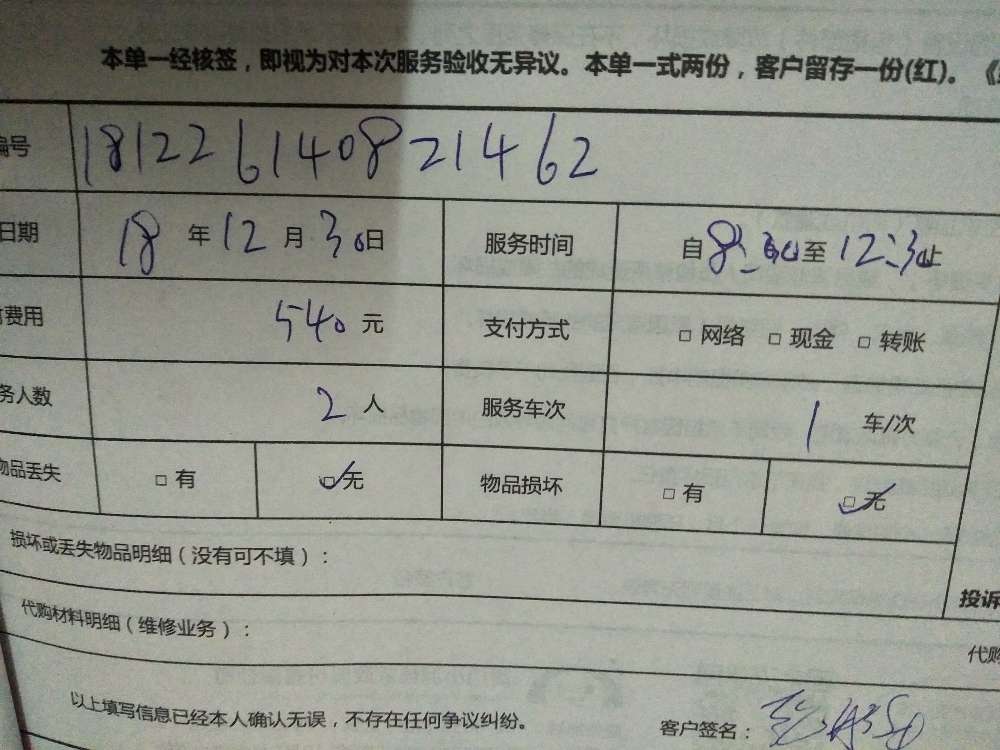 本单一经核签，即视为对本次服务验收无异议。本单一式两份，客户留存一份(红)。《
编号 18122 61408 21462
日期 18 年 12 月 30 日 服务时间 自 8: 至 12:30 止
费用 540 元 支付方式 □ 网络 □ 现金 □ 转账
务人数 2 人 服务车次 1 车/次
物品丢失 □ 有 ☑ 无 物品损坏 □ 有 ☑ 无
损坏或丢失物品明细（没有可不填）：
投诉
代购材料明细（维修业务）：
代购
以上填写信息已经本人确认无误，不存在任何争议纠纷。 客户签名：